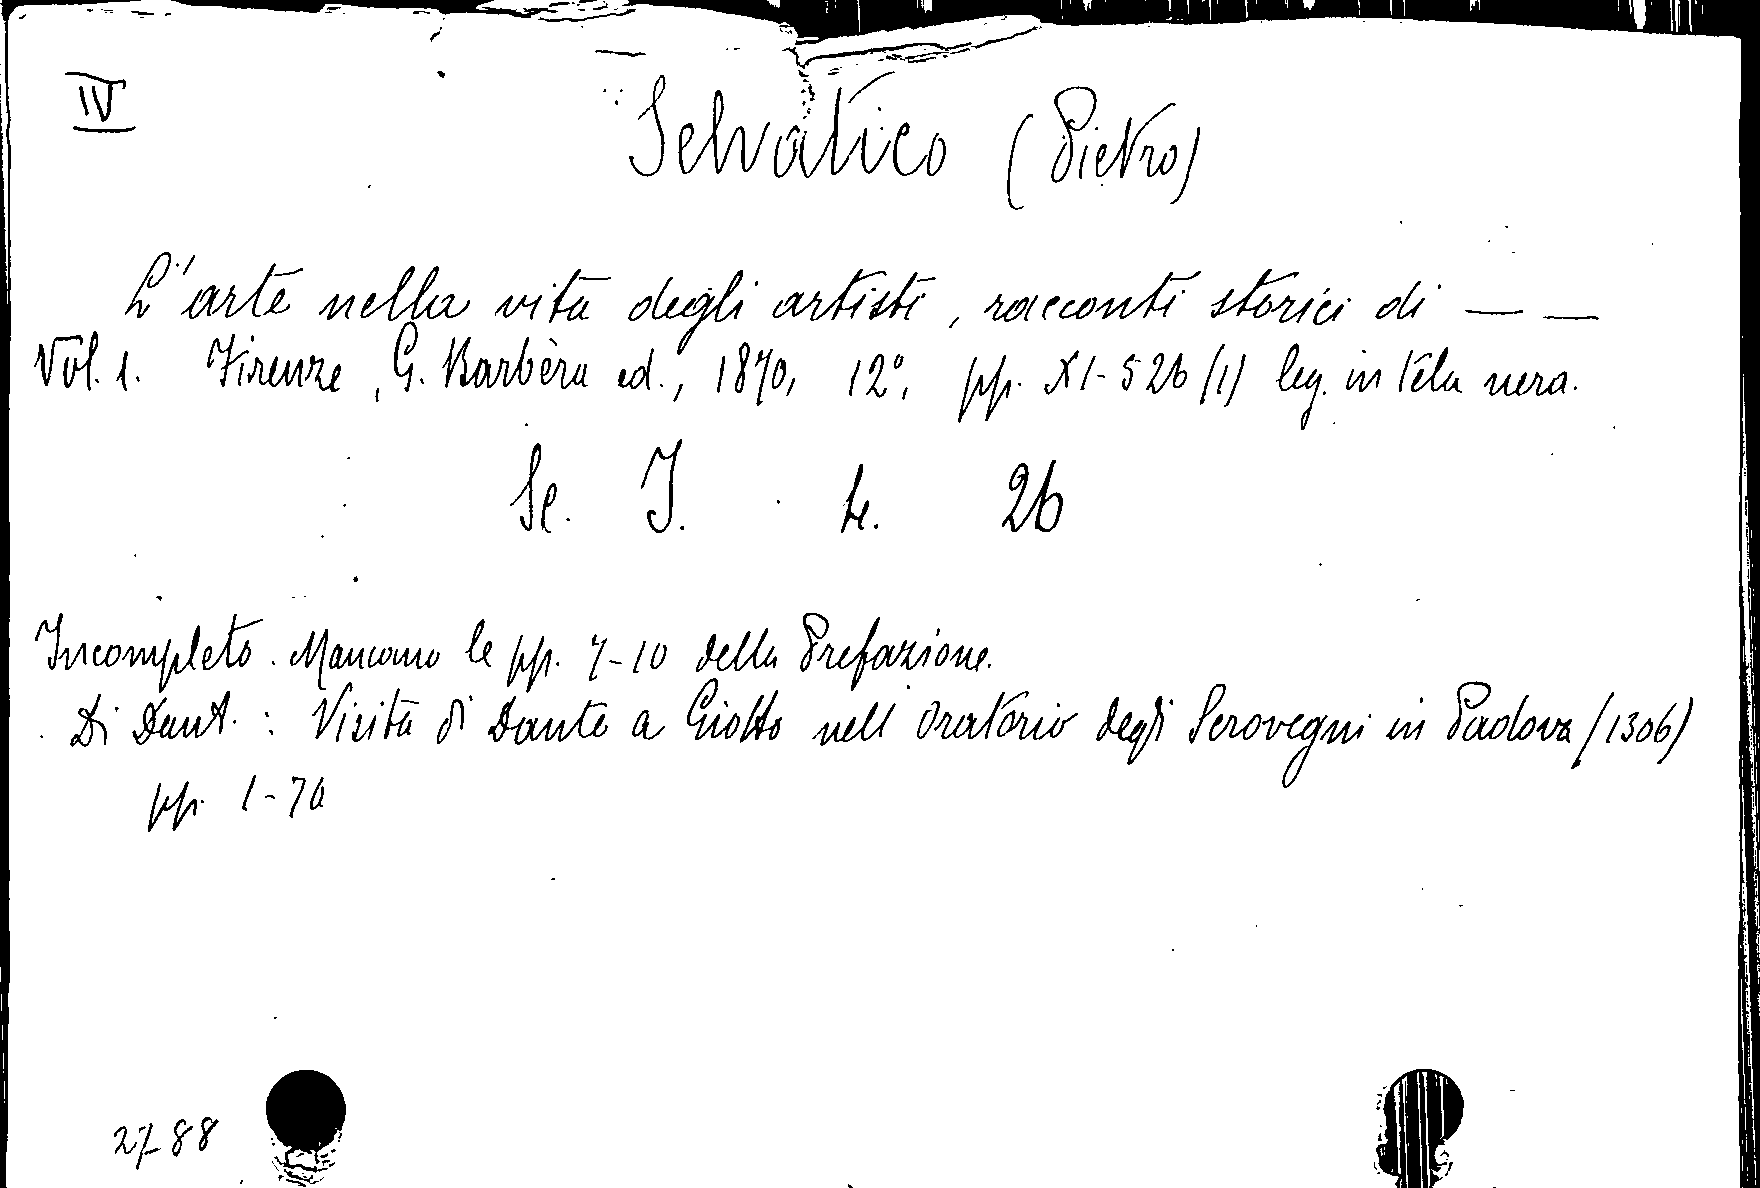 IV
Selvatico (Pietro)
L'arte nella vita degli artisti, racconti storici di — —
Vol. 1. Firenze, G. Barbèra ed., 1870, 12°, pp. XI-526 (1) leg. in tela nera.
Sc. I. L. 26
Incompleto. Mancano le pp. 7-10 della Prefazione.
Di Dant. : Visita di Dante a Giotto nell oratorio degli Scrovegni in Padova (1306)
pp. 1-70
2788